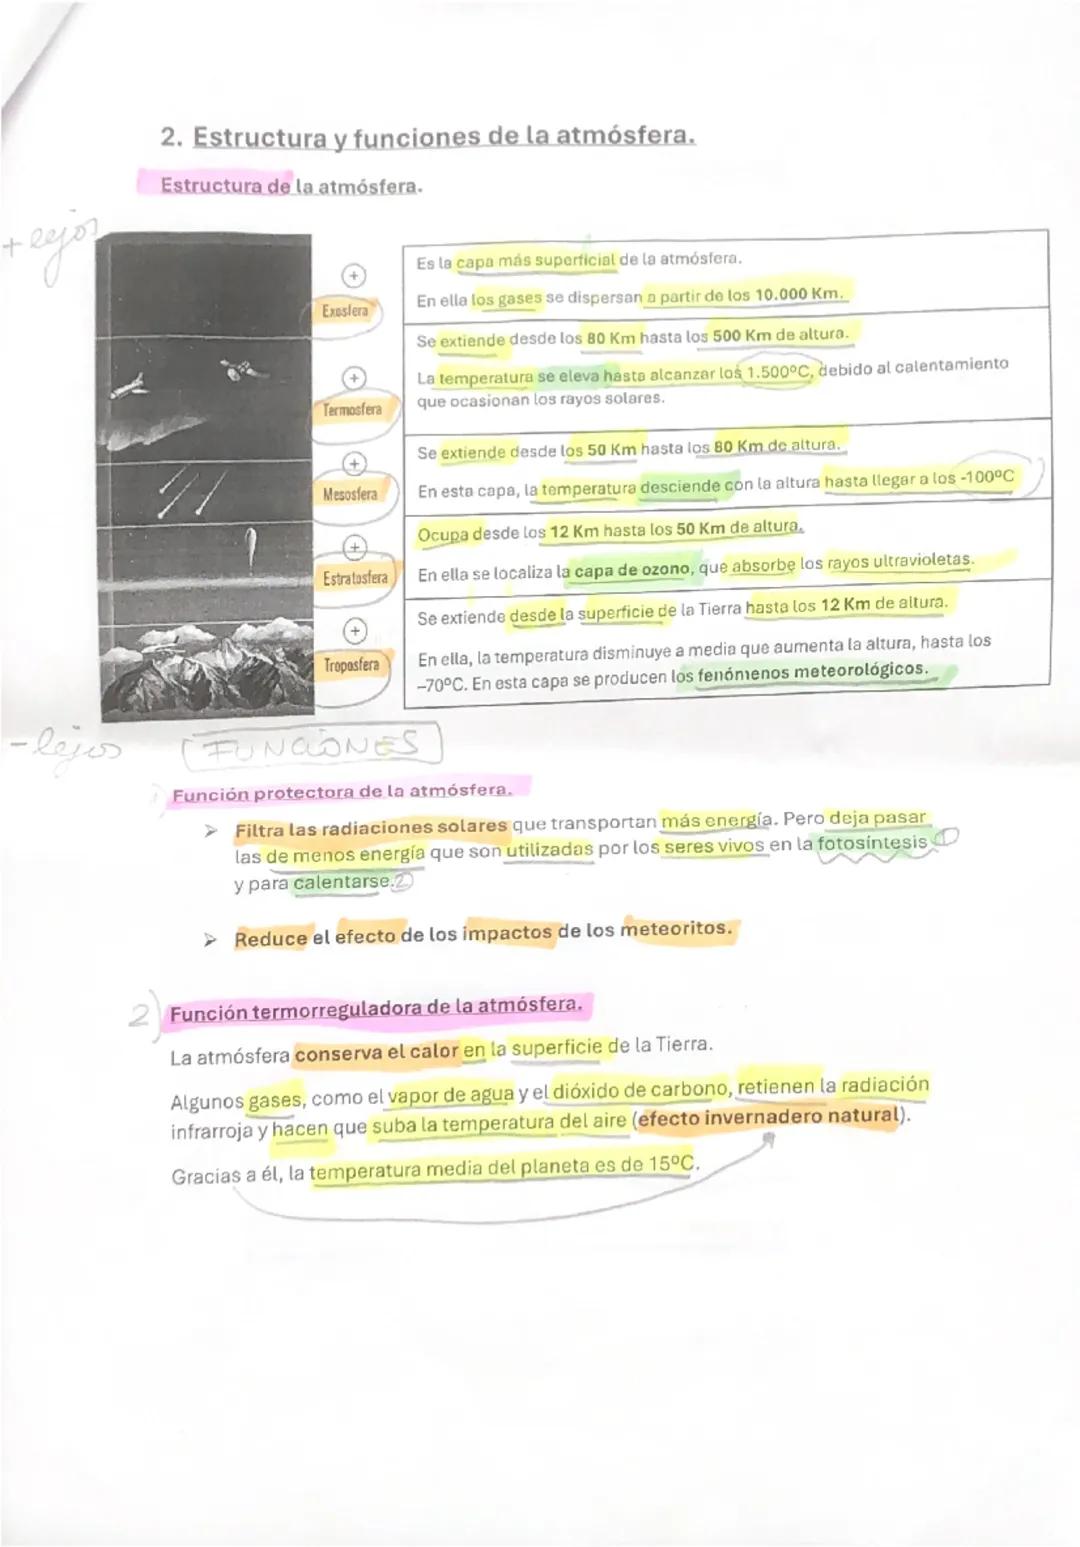 2. Estructura y funciones de la atmósfera.
Estructura de la atmósfera.
+ lejos
Exosfera
Es la capa más superficial de la atmósfera.
En ella los gases se dispersan a partir de los 10.000 Km.
Termosfera
Se extiende desde los 80 Km hasta los 500 Km de altura.
La temperatura se eleva hasta alcanzar los 1.500ºC, debido al calentamiento
que ocasionan los rayos solares.
Mesosfera
Se extiende desde los 50 Km hasta los 80 Km de altura.
En esta capa, la temperatura desciende con la altura hasta llegar a los -100ºC
Estratosfera
Ocupa desde los 12 Km hasta los 50 Km de altura.
En ella se localiza la capa de ozono, que absorbe los rayos ultravioletas.
Troposfera
Se extiende desde la superficie de la Tierra hasta los 12 Km de altura.
En ella, la temperatura disminuye a media que aumenta la altura, hasta los
–70ºC. En esta capa se producen los fenómenos meteorológicos.
- lejos
FUNCIONES
1) Función protectora de la atmósfera.
➢ Filtra las radiaciones solares que transportan más energía. Pero deja pasar
las de menos energía que son utilizadas por los seres vivos en la fotosíntesis ①
y para calentarse. ②
➢ Reduce el efecto de los impactos de los meteoritos.
2) Función termorreguladora de la atmósfera.
La atmósfera conserva el calor en la superficie de la Tierra.
Algunos gases, como el vapor de agua y el dióxido de carbono, retienen la radiación
infrarroja y hacen que suba la temperatura del aire (efecto invernadero natural).
Gracias a él, la temperatura media del planeta es de 15ºC.